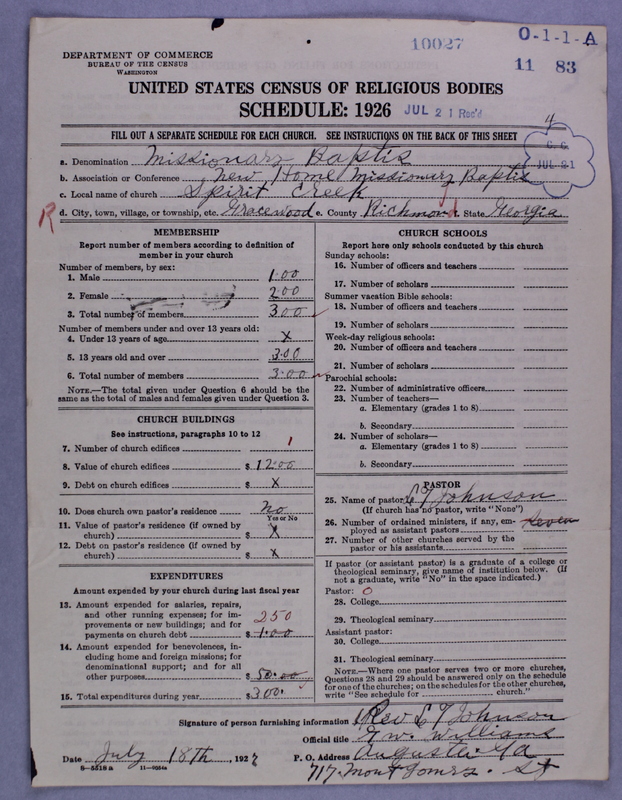 10027
O-1-1-A
11 83
DEPARTMENT OF COMMERCE
BUREAU OF THE CENSUS
WASHINGTON
UNITED STATES CENSUS OF RELIGIOUS BODIES
SCHEDULE: 1926 JUL 21 Rec'd
4
FILL OUT A SEPARATE SCHEDULE FOR EACH CHURCH. SEE INSTRUCTIONS ON THE BACK OF THIS SHEET
JUL 21
a. Denomination Missionary Baptis
b. Association or Conference New Home Missionary Baptis
c. Local name of church Spirit Creek
R d. City, town, village, or township, etc. Gracewood e. County Richmond f. State Georgia
MEMBERSHIP
Report number of members according to definition of
member in your church
Number of members, by sex:
1. Male 1.00
2. Female 200
3. Total number of members 300
Number of members under and over 13 years old:
4. Under 13 years of age x
5. 13 years old and over 300
6. Total number of members 3.00
NOTE.—The total given under Question 6 should be the
same as the total of males and females given under Question 3.
CHURCH BUILDINGS
See instructions, paragraphs 10 to 12
7. Number of church edifices 1
8. Value of church edifices $ 12.00
9. Debt on church edifices $ x
10. Does church own pastor's residence? No
Yes or No
11. Value of pastor's residence (if owned by
church) $ x
12. Debt on pastor's residence (if owned by
church) $ x
EXPENDITURES
Amount expended by your church during last fiscal year
13. Amount expended for salaries, repairs,
and other running expenses; for im-
provements or new buildings; and for 250
payments on church debt $ 1.00
14. Amount expended for benevolences, in-
cluding home and foreign missions; for
denominational support; and for all
other purposes $ 50.00
15. Total expenditures during year $ 300.
CHURCH SCHOOLS
Report here only schools conducted by this church
Sunday schools:
16. Number of officers and teachers
17. Number of scholars
Summer vacation Bible schools:
18. Number of officers and teachers
19. Number of scholars
Week-day religious schools:
20. Number of officers and teachers
21. Number of scholars
Parochial schools:
22. Number of administrative officers
23. Number of teachers—
a. Elementary (grades 1 to 8)
b. Secondary
24. Number of scholars—
a. Elementary (grades 1 to 8)
b. Secondary
PASTOR
25. Name of pastor Johnson
(If church has no pastor, write "None")
26. Number of ordained ministers, if any, em-
ployed as assistant pastors Seven
27. Number of other churches served by the
pastor or his assistants
If pastor (or assistant pastor) is a graduate of a college or
theological seminary, give name of institution below. (If
not a graduate, write "No" in the space indicated.)
Pastor: 0
28. College
29. Theological seminary
Assistant pastor:
30. College
31. Theological seminary
NOTE.—Where one pastor serves two or more churches,
Questions 28 and 29 should be answered only on the schedule
for one of the churches; on the schedules for the other churches,
write "See schedule for church."
Signature of person furnishing information Rev Johnson
Official title Williams
Date July 18th, 1927 P. O. Address Augusta Ga
8—5518a 11—9554a
717 Montgomry. St